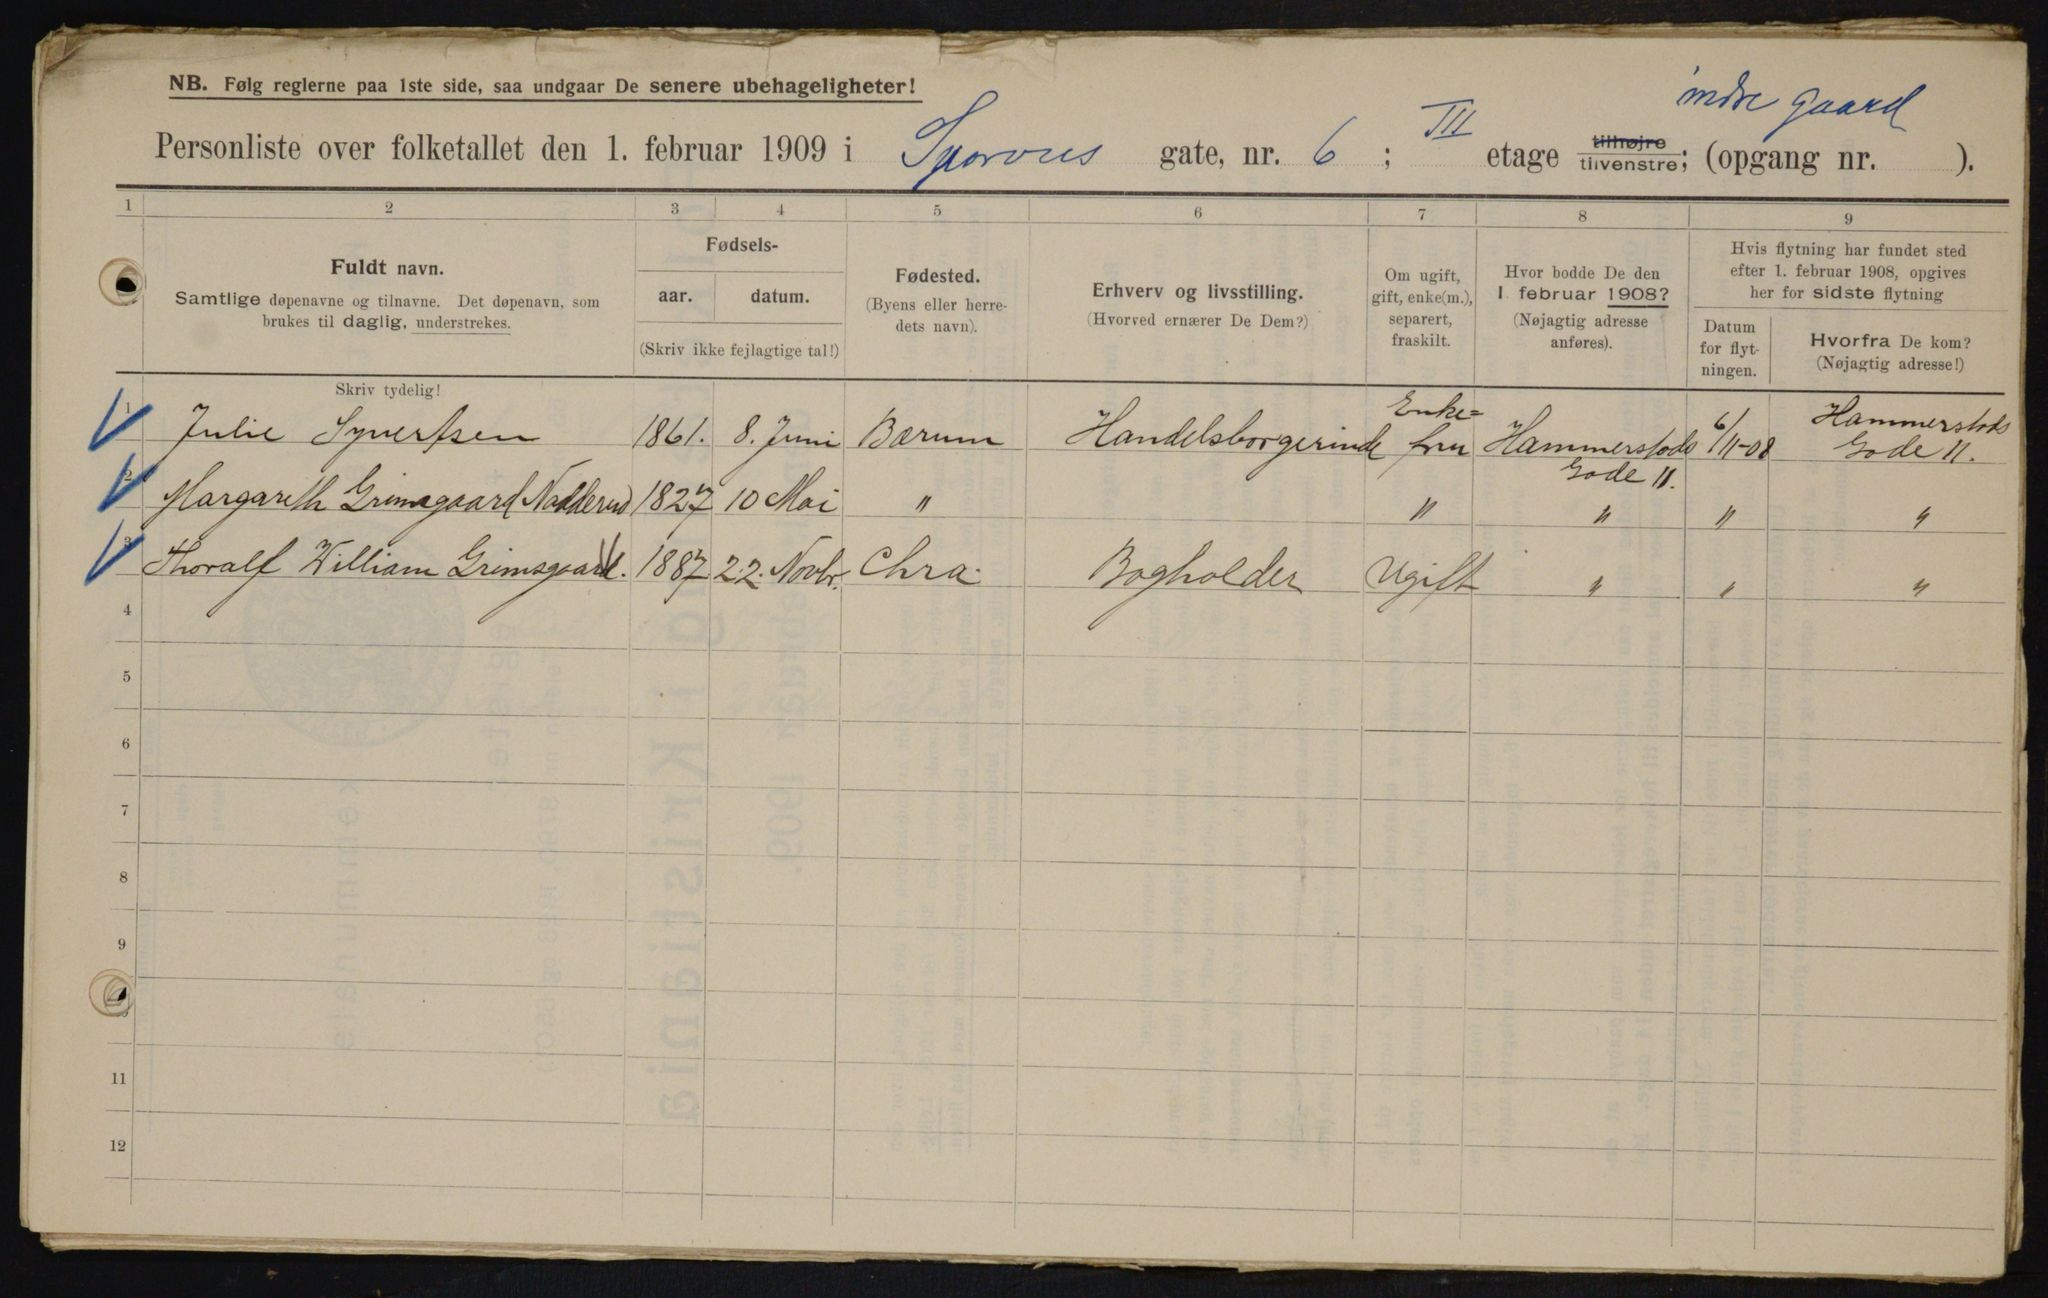 NB. Følg reglerne paa 1ste side, saa undgaar De senere ubehageligheter!
indre gaard
Personliste over folketallet den 1. februar 1909 i Sporveis gate, nr. 6 ; III etage tilhøjre tilvenstre; (opgang nr. ).
1 2 3 4 5 6 7 8 9
Fuldt navn.
Samtlige døpenavne og tilnavne. Det døpenavn, som
brukes til daglig, understrekes.
Skriv tydelig!
Fødsels-
aar. datum.
(Skriv ikke fejlagtige tal!)
Fødested.
(Byens eller herre-
dets navn).
Erhverv og livsstilling.
(Hvorved ernærer De Dem?)
Om ugift,
gift, enke(m.),
separert,
fraskilt.
Hvor bodde De den
1. februar 1908?
(Nøjagtig adresse
anføres).
Hvis flytning har fundet sted
efter 1. februar 1908, opgives
her for sidste flytning
Datum
for flyt-
ningen.
Hvorfra De kom?
(Nøjagtig adresse!)
1 Julie Syvertsen 1861. 8. Juni Bærum Handelsborgerinde Enke=
fru Hammerstads
Gade 11. 6/11-08 Hammerstads
Gade 11.
2 Margareth Grimsgaard Nadderud 1827 10 Mai " " " " "
3 Thoralf William Grimsgaard. 1887 22. Novbr. Chra. Bogholder Ugift " " "
4
5
6
7
8
9
11
12